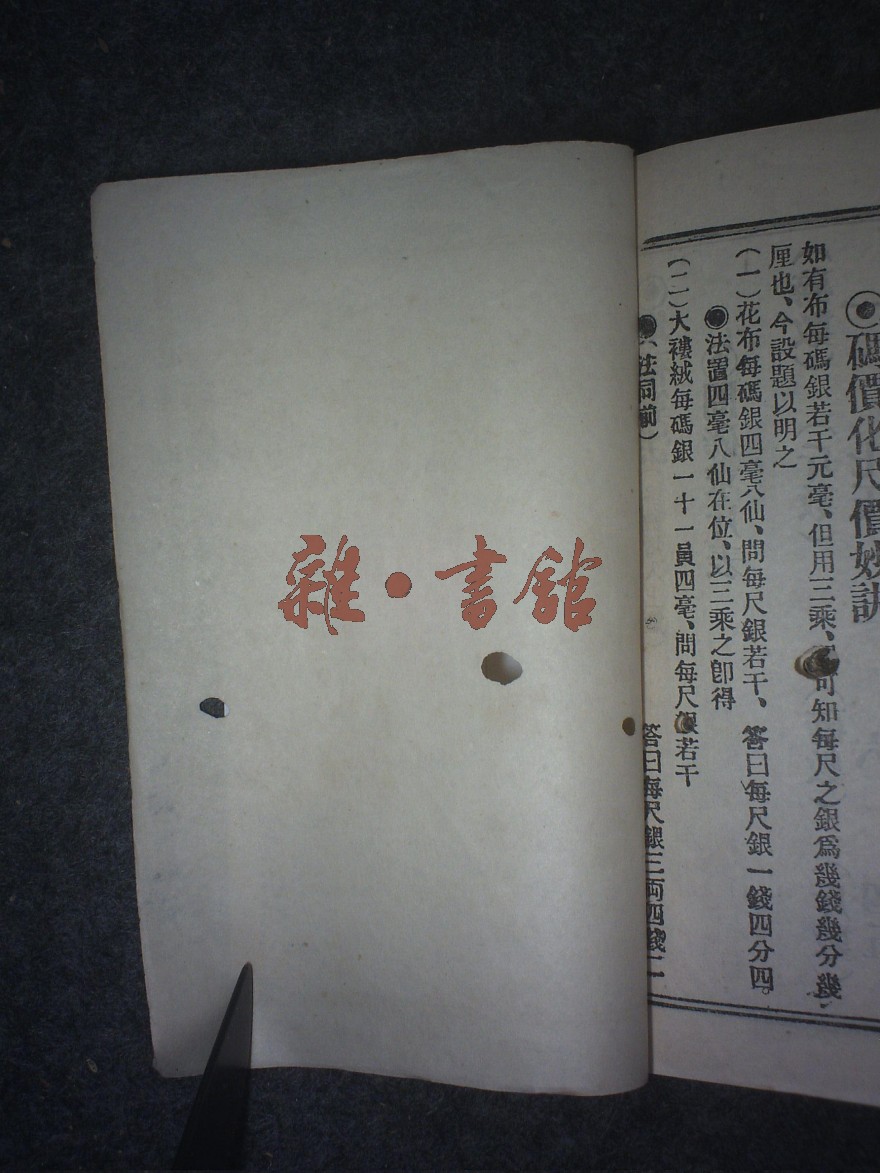 碼價化尺價妙訣
如有布每碼銀若干元毫、但用三乘、可知每尺之銀爲幾錢幾分幾
厘也、今設題以明之
(一)花布每碼銀四毫八仙、問每尺銀若干、 答曰每尺銀一錢四分四
●法置四毫八仙在位、以三乘之卽得
(二)大褸絨每碼銀一十一員四毫、問每尺銀若干
答曰每尺銀三両四錢二
●(法同前)
雜·書館